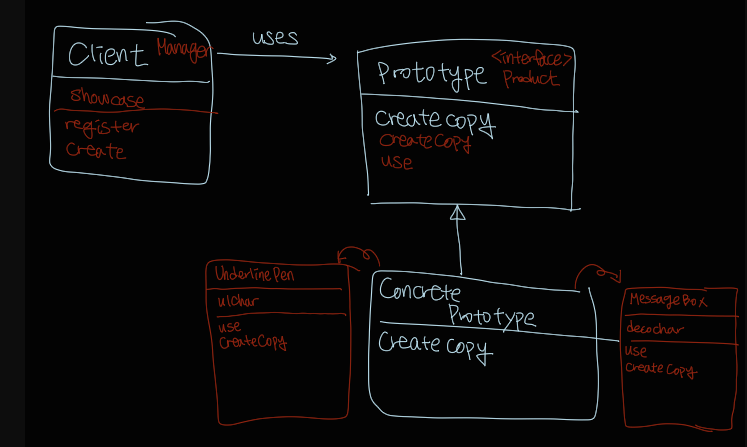 Client Manager
showcase
register
Create
uses
<interface>
Prototype Product
createcopy
CreateCopy
use
UnderlinePen
ulchar
use
CreateCopy
Concrete
Prototype
Createcopy
MessageBox
decochar
use
CreateCopy